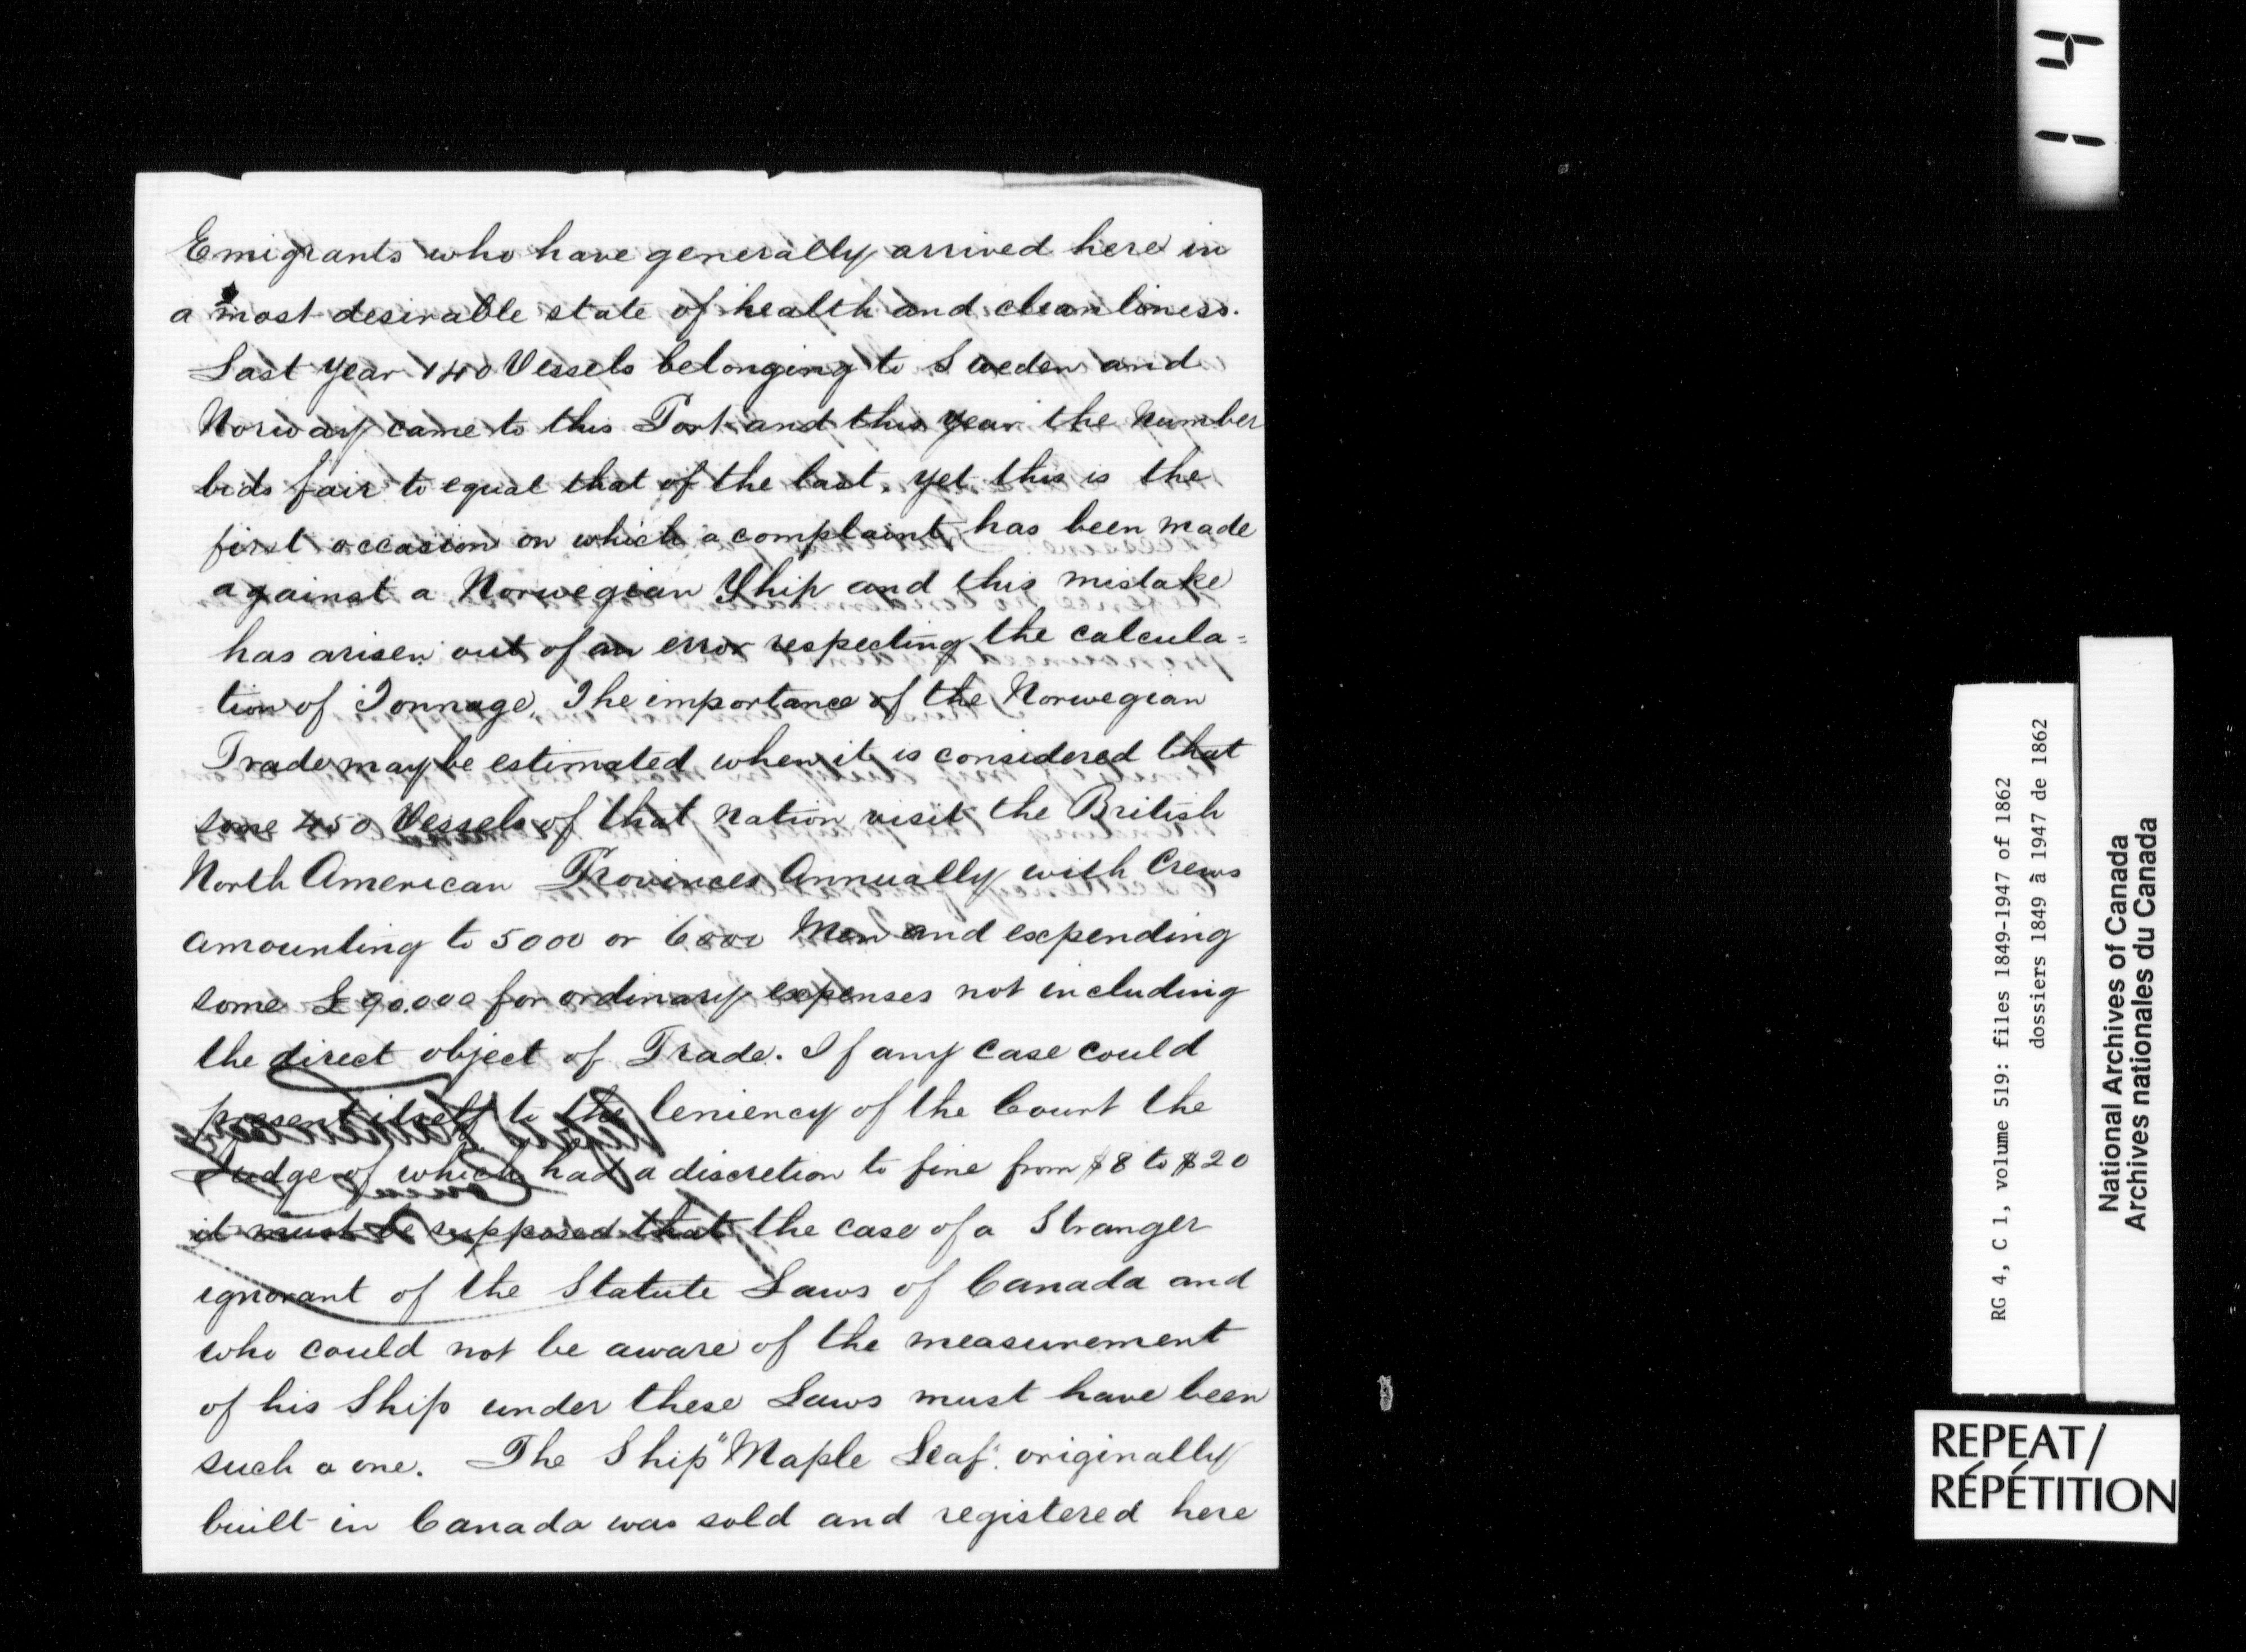 Emigrants who have generally arrived here in
a most desirable state of health and cleanliness.
Last year 140 Vessels belonging to Sweden and
Norway came to this Port and this year the Number
bids fair to equal that of the last, yet this is the
first occasion on which a complaint has been made
against a Norwegian Ship and this mistake
has arisen out of an error respecting the calcula=
tion of Tonnage, The importance of the Norwegian
Trade may be estimated when it is considered that
some 450 Vessels of that Nation visit the British
North American Provinces Annually with Crews
amounting to 5000 or 6000 Men and expending
some £90.000 for ordinary expenses not including
the direct object of Trade. If any case could
present itself to the leniency of the Court the
Judge of which had a discretion to fine from $8 to $20
it must be supposed that the case of a Stranger
ignorant of the Statute Laws of Canada and
who could not be aware of the measurement
of his Ship under these Laws must have been
such a one. The Ship "Maple Leaf" originally
built in Canada was sold and registered here
14
RG 4, C 1, volume 519: files 1849-1947 of 1862
dossiers 1849 à 1947 de 1862
National Archives of Canada
Archives nationales du Canada
REPEAT/
RÉPÉTITION